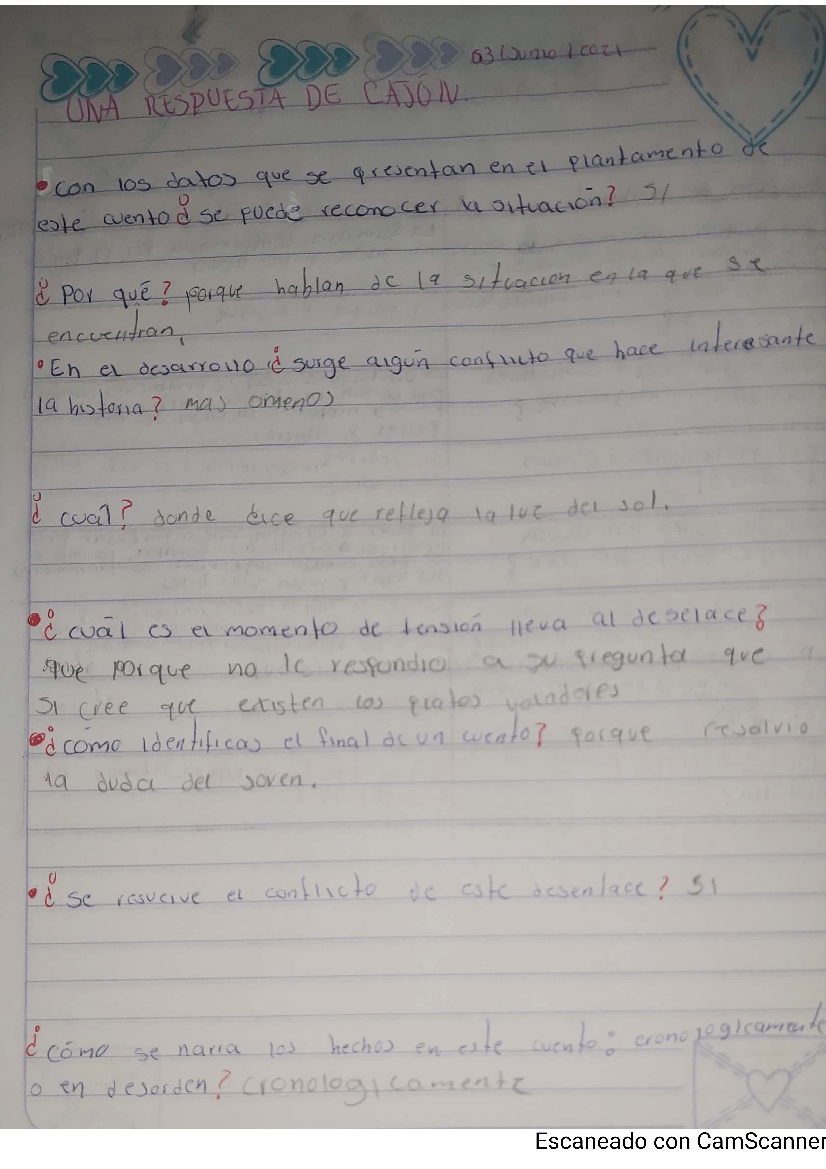 03/Junio/2021
UNA RESPUESTA DE CAJÓN.
• Con los datos que se presentan en el plantamento de
este cuento ¿ se puede reconocer la situación? SI
¿ Por qué? porque hablan de la situacion en la que se
encuentran,
• En el desarrollo ¿ surge algún conflicto que hace interesante
la historia? mas omenos
¿ cuál? donde dice que refleja la luz del sol.
• ¿ cuál es el momento de tensión lleva al deselace?
que porque no le respondio a su pregunta que
si cree que existen los platos voladores
• ¿ cómo identificas el final de un cuento? porque resolvio
la duda del joven.
• ¿ se resuelve el conflicto de este desenlace? SI
¿ cómo se narra los hechos en este cuento: cronologicamente
o en desorden? cronologicamente
Escaneado con CamScanner